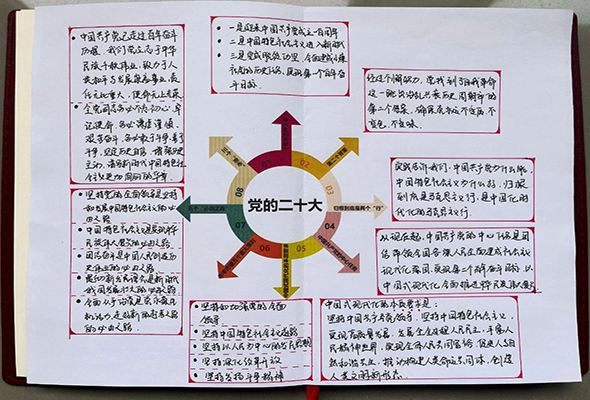 • 中国共产党已走过百年奋斗
历程。我们党立志于中华
民族千秋伟业，致力于人
类和平与发展崇高事业，责
任无比重大，使命无上光荣
• 全党同志务必不忘初心、牢
记使命，务必谦虚谨慎、
艰苦奋斗，务必敢于斗争、善于
斗争，坚定历史自信，增强历史
主动，谱写新时代中国特色社
会主义更加绚丽的华章。
• 一是迎来中国共产党成立一百周年
• 二是中国特色社会主义进入新时代
• 三是完成脱贫攻坚、全面建成小康
社会的历史任务，实现第一个百年奋
斗目标。
经过不懈努力，党找到了自我革命
这一跳出治乱兴衰历史周期率的
第二个答案，确保党永远不变质、不
变色、不变味。
实践告诉我们，中国共产党为什么能，
中国特色社会主义为什么好，归根
到底是马克思主义行，是中国化时
代化的马克思主义行。
从现在起，中国共产党的中心任务是团
结带领全国各族人民全面建成社会主义
现代化强国、实现第二个百年奋斗目标，以
中国式现代化全面推进
中国式现代化的本质要求是：
坚持中国共产党领导，坚持中国特色社会主义，
实现高质量发展，发展全过程人民民主，丰富人
民精神世界，实现全体人民共同富裕，促进人与自
然和谐共生，推动构建人类命运共同体，创造
人类文明新形态。
• 坚持和加强党的全面
领导
• 坚持中国特色社会主义道路
• 坚持以人民为中心的发展思想
• 坚持深化改革开放
• 坚持发扬斗争精神
• 坚持党的全面领导是坚持
和发展中国特色社会主义的必
由之路
• 中国特色社会主义是实现中华
民族伟大复兴的必由之路
• 团结奋斗是中国人民创造历
史伟业的必由之路
• 贯彻新发展理念是新时代
我国发展壮大的必由之路
• 全面从严治党是党永葆生
机活力、走好新的赶考之路
的必由之路
党的二十大
01
02
03
04
05
06
07
08
归根到底是两个“行”